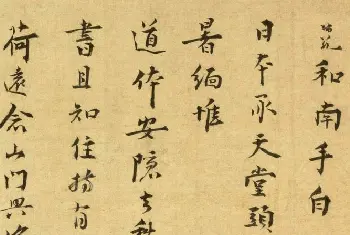 和南手白
日本承天堂頭
暑緬惟
道体安隱去秋
書且知住持有
荷遠念山門興